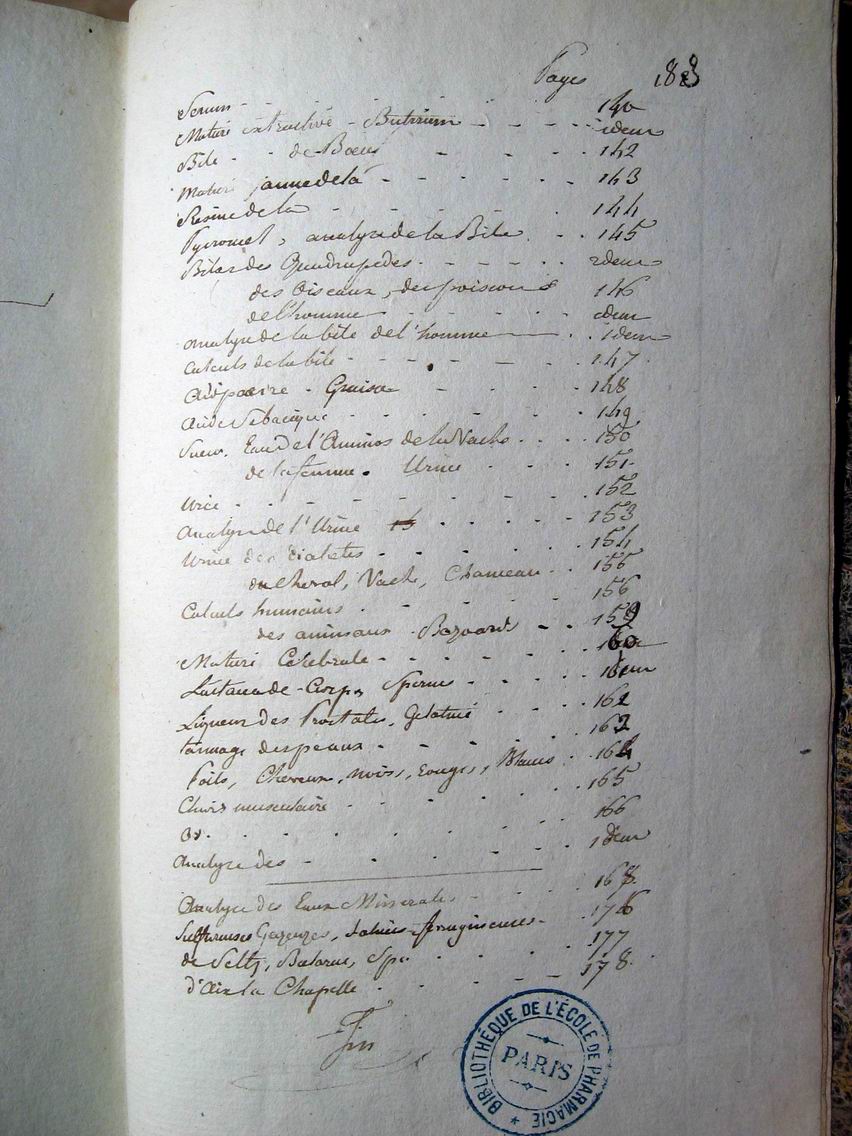 Pages 183
Serum - 140
Matière extractive - Butirum - idem
Bile - de Boeuf - 142
Matiere jaune de la - 143
Resine de la - 144
Pycromel, analyse de la Bile - 145
Biles des Quadrupedes - idem
des Oiseaux, des poissons 146
de l'homme - idem
analyse de la bile de l'homme - idem
Calculs de la bile - 147
Graisse - 148
Acide Sebacique - 149
Sueur, Eau de l'Amnios de la Vache - 150
de la femme. Urine - 151
Uree - 152
Analyse de l'Urine - 153
Urine des diabetes - 154
du cheval, Vache, Chameau - 155
Calculs humains - 156
des animaux - Bezoards - 159
Matiere Cérébrale - 160
Sperme - idem
Liqueur des Prostates, Gelatine 162
tannage des peaux - 163
Poils, Cheveux, noirs, rouges, Blancs 164
Chair musculaire - 165
Os - 166
Analyse des - idem
Analyse des Eaux Minerales - 168
Sulfureuses Gazeuzes, Salines ferrugineuses - 176
de Seltz, Balaruc, Spa - 177
d'Aix la Chapelle - 178
Fin
BIBLIOTHÈQUE DE L'ÉCOLE DE PHARMACIE
PARIS